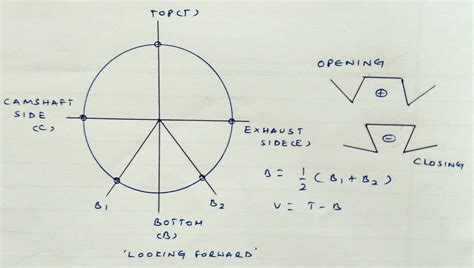 TOP(T)
OPENING
⊕
CAMSHAFT
SIDE
(C)
EXHAUST
SIDE(E)
⊖
CLOSING
B = 1/2 (B1 + B2)
V = T - B
B1
B2
BOTTOM
(B)
'LOOKING FORWARD'